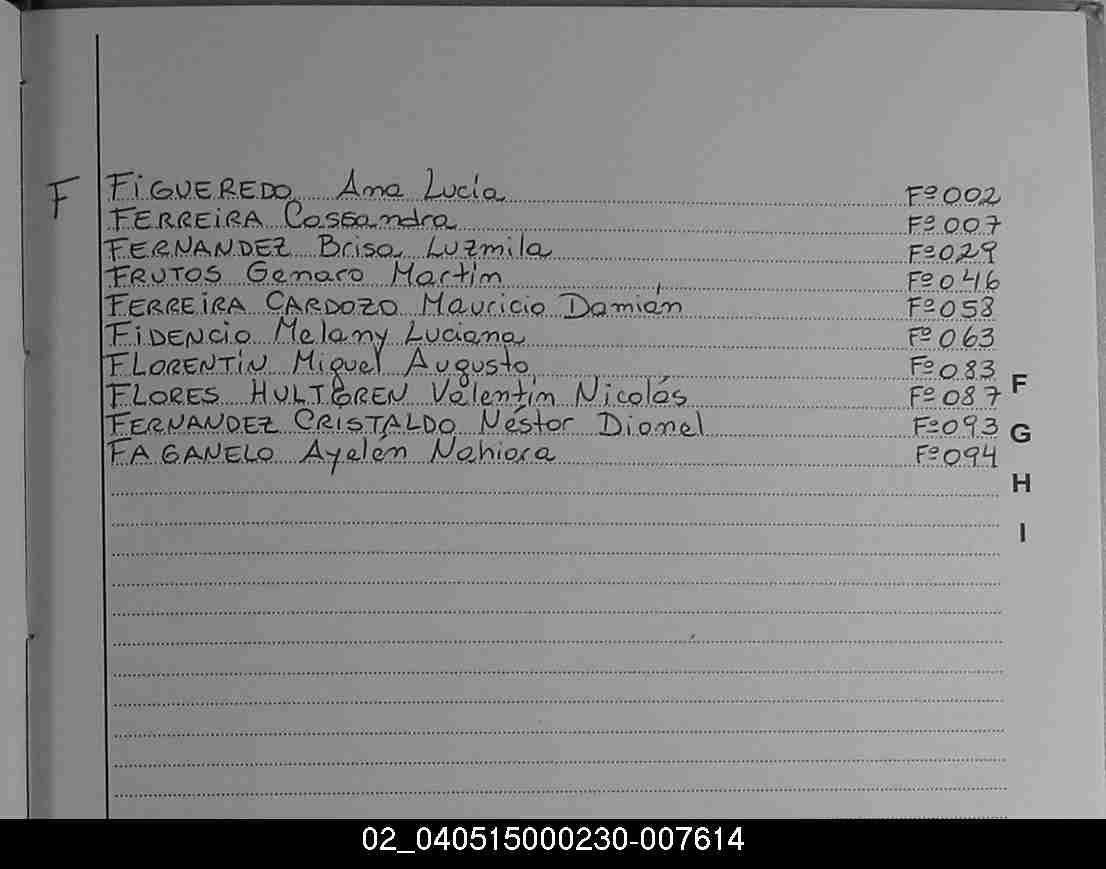 F
FIGUEREDO Ana Lucía Fº 002
FERREIRA Cassandra Fº 007
FERNANDEZ Brisa Luzmila Fº 029
FRUTOS Genaro Martin Fº 046
FERREIRA CARDOZO Mauricio Damián Fº 058
FIDENCIO Melany Luciana Fº 063
FLORENTÍN Miguel Augusto Fº 083
FLORES HULTGREN Valentín Nicolás Fº 087
FERNANDEZ CRISTALDO Néstor Dionel Fº 093
FAGANELO Ayelén Nahiara Fº 094
F
G
H
I
02_040515000230-007614